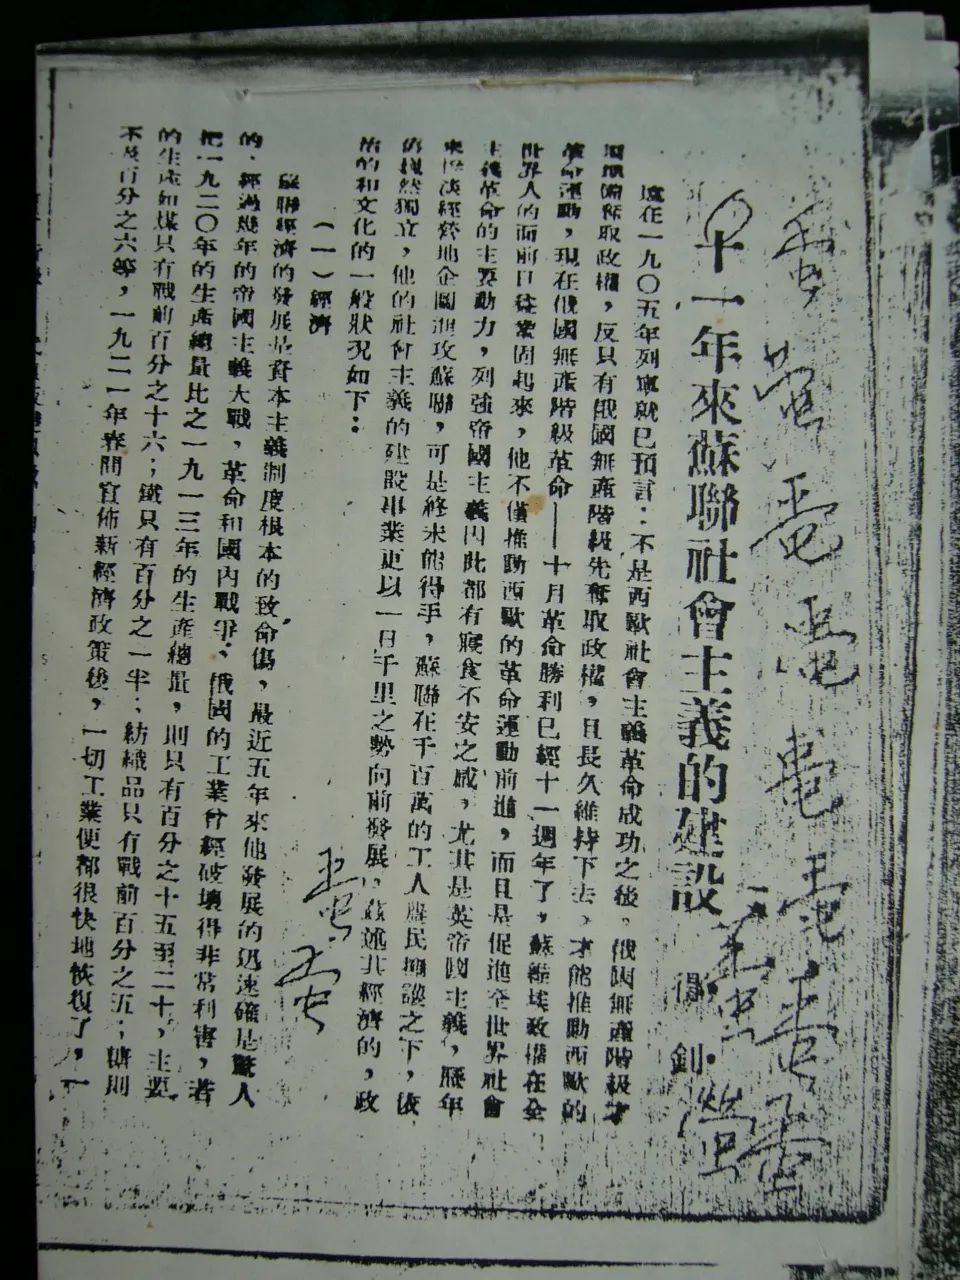 十一年來蘇聯社會主義的建設
釗
遠在一九〇五年列寧就已預言：不是西歐社會主義革命成功之後，俄國無產階級才
奪取政權，反只有俄國無產階級先奪取政權，且長久維持下去，才能推動西歐的
革命運動，現在俄國無產階級革命——十月革命勝利已經十一週年了，蘇維埃政權在全
世界人的面前日益鞏固起來，他不僅推動西歐的革命運動前進，而且是促進全世界社會
主義革命的主要動力，列強帝國主義因此都有寢食不安之感，尤其是英帝國主義，歷年
來慘淡經營地企圖進攻蘇聯，可是終未能得手，蘇聯在千百萬的工人農民擁護之下，依
舊巍然獨立，他的社會主義的建設事業更以一日千里之勢向前發展，茲述其經濟的，政
治的和文化的一般狀況如下：
（一）經濟
蘇聯經濟的發展是資本主義制度根本的致命傷，最近五年來他發展的迅速確是驚人
的，經過幾年的帝國主義大戰，革命和國內戰爭，俄國的工業曾經破壞得非常利害，若
把一九二〇年的生產總量比之一九一三年的生產總量，則只有百分之十五至二十，主要
的生產如煤只有戰前百分之十六；鐵只有百分之一半；紡織品只有戰前百分之五；糖則
不及百分之六等，一九二一年春間宣佈新經濟政策後，一切工業便都很快地恢復了，一